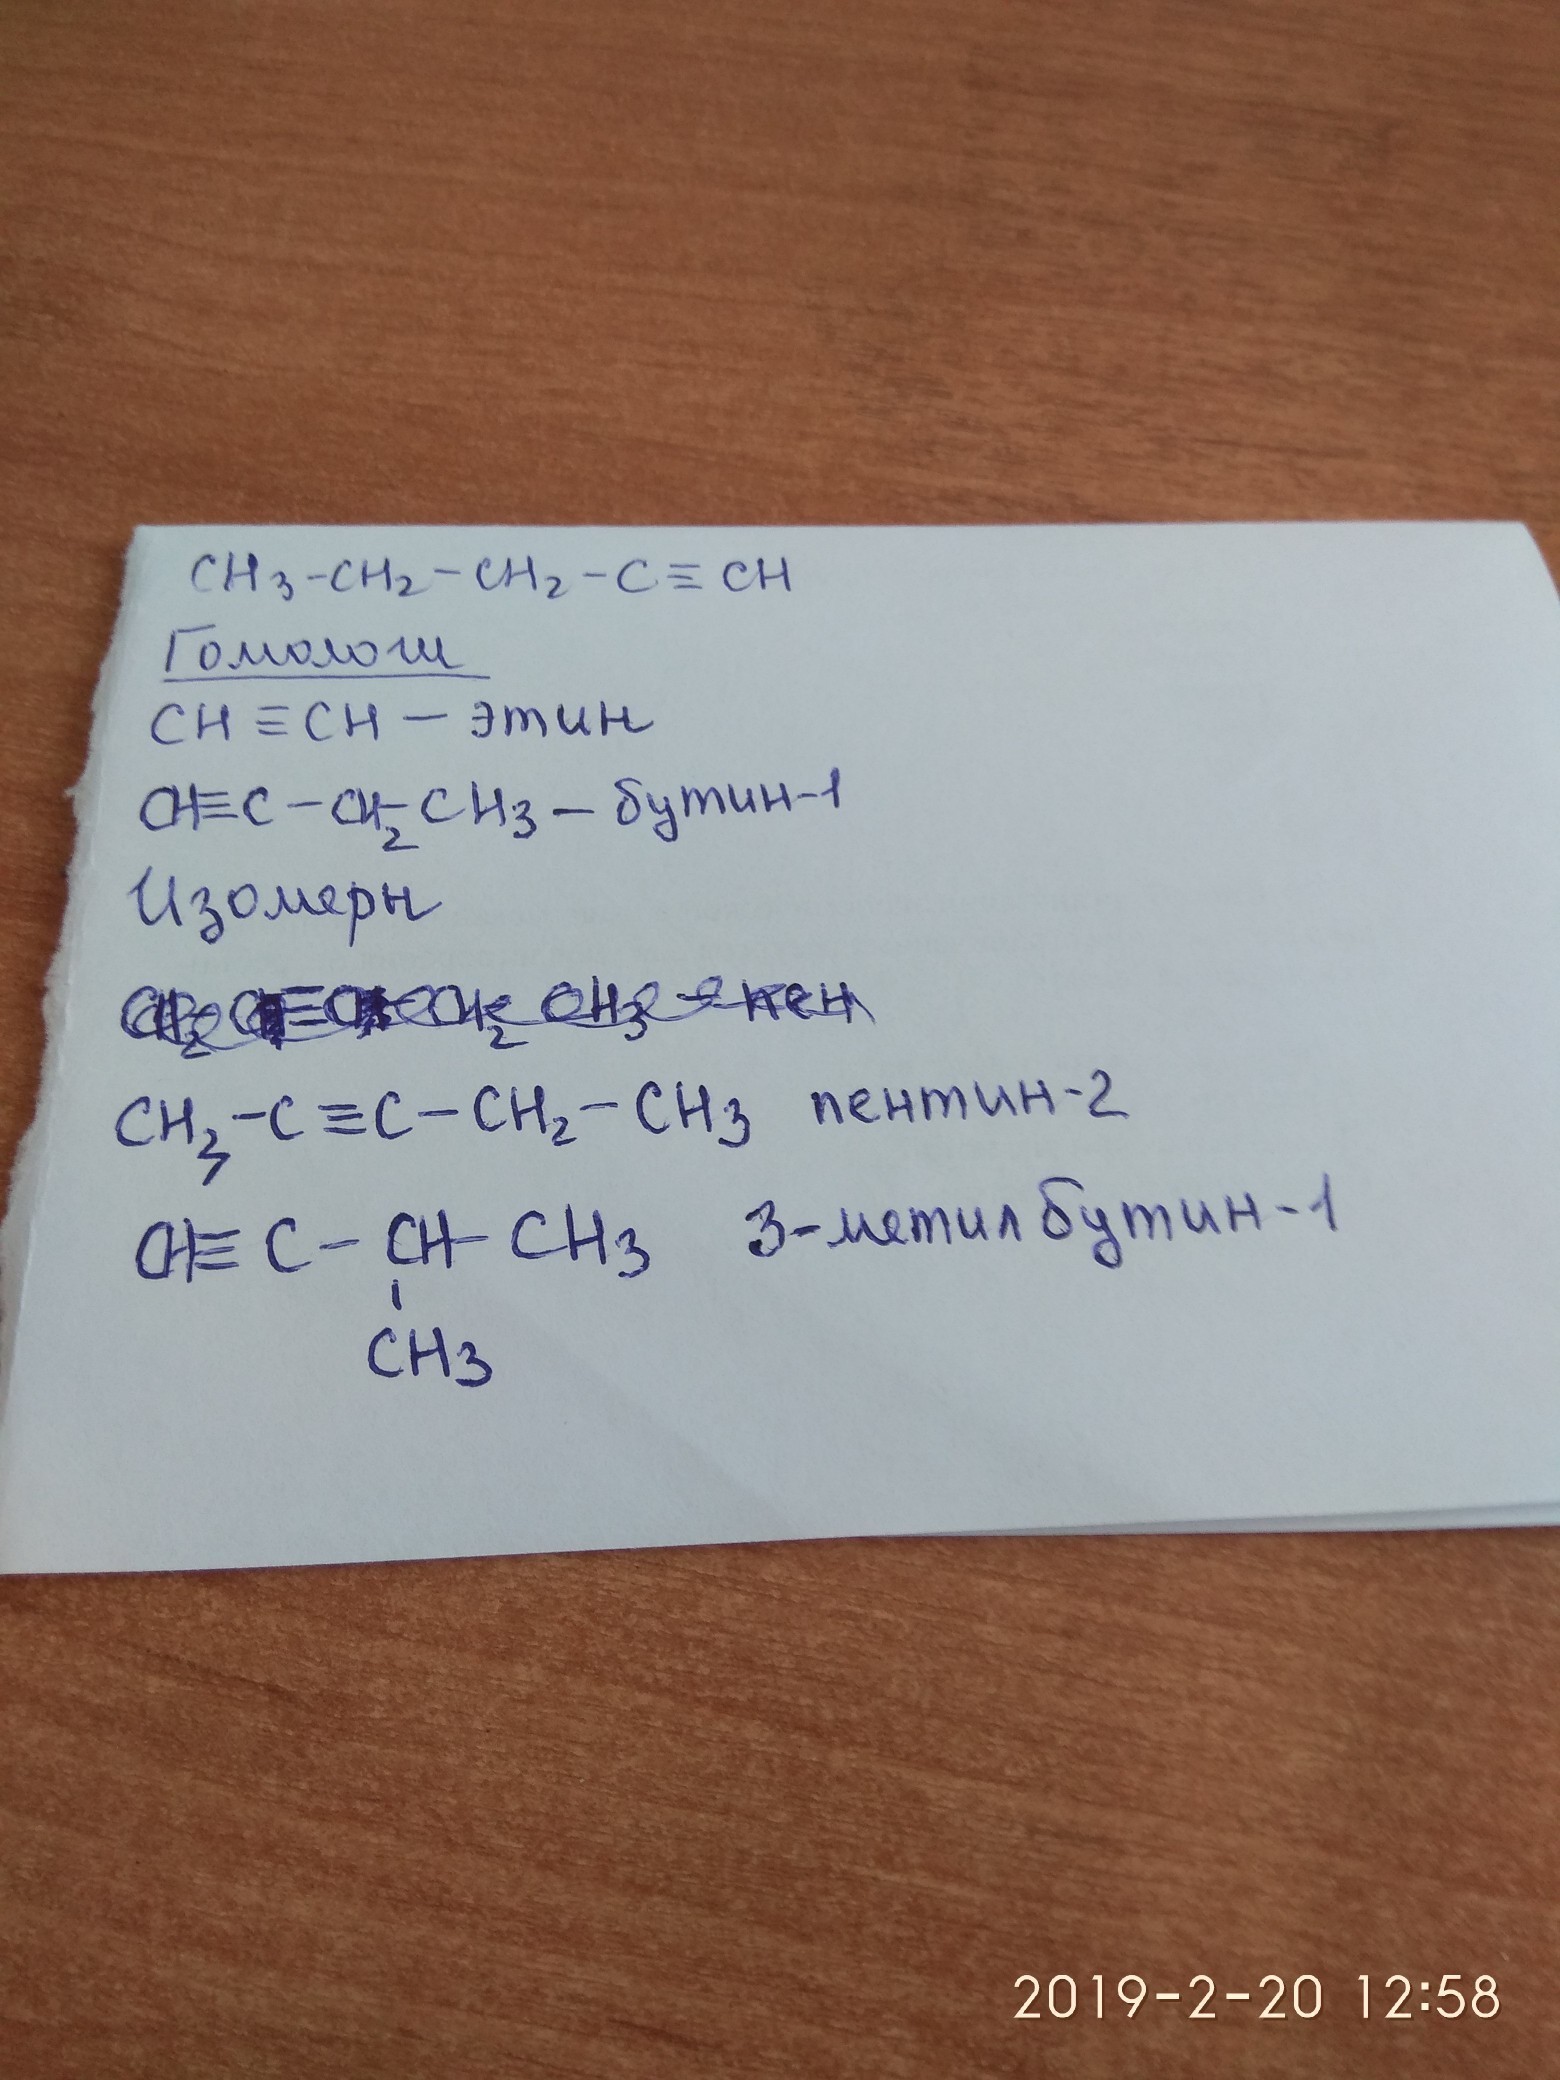 CH3-CH2-CH2-C≡CH
Гомологи
CH≡CH - этин
CH≡C-CH2-CH3 - бутин-1
Изомеры
CH3-C≡C-CH2-CH3 пентин-2
CH≡C-CH-CH3 3-метилбутин-1
CH3
2019-2-20 12:58